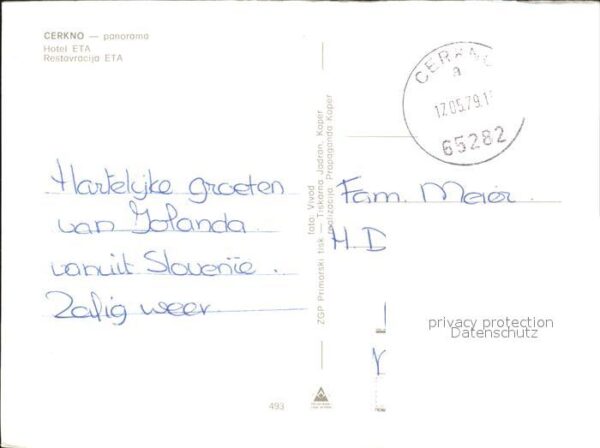 CERKNO — panorama
Hotel ETA
Restavracija ETA
CERKN
a
17.05.79.1
65282
Hartelijke groeten
van Jolanda
vanuit Slovenïe.
Zalig weer
foto: Vivod
ZGP Primorski tisk — Tiskarna Jadran, Koper
realizacija Propaganda Koper
Fam. Meier.
H.D
privacy protection
Datenschutz
493